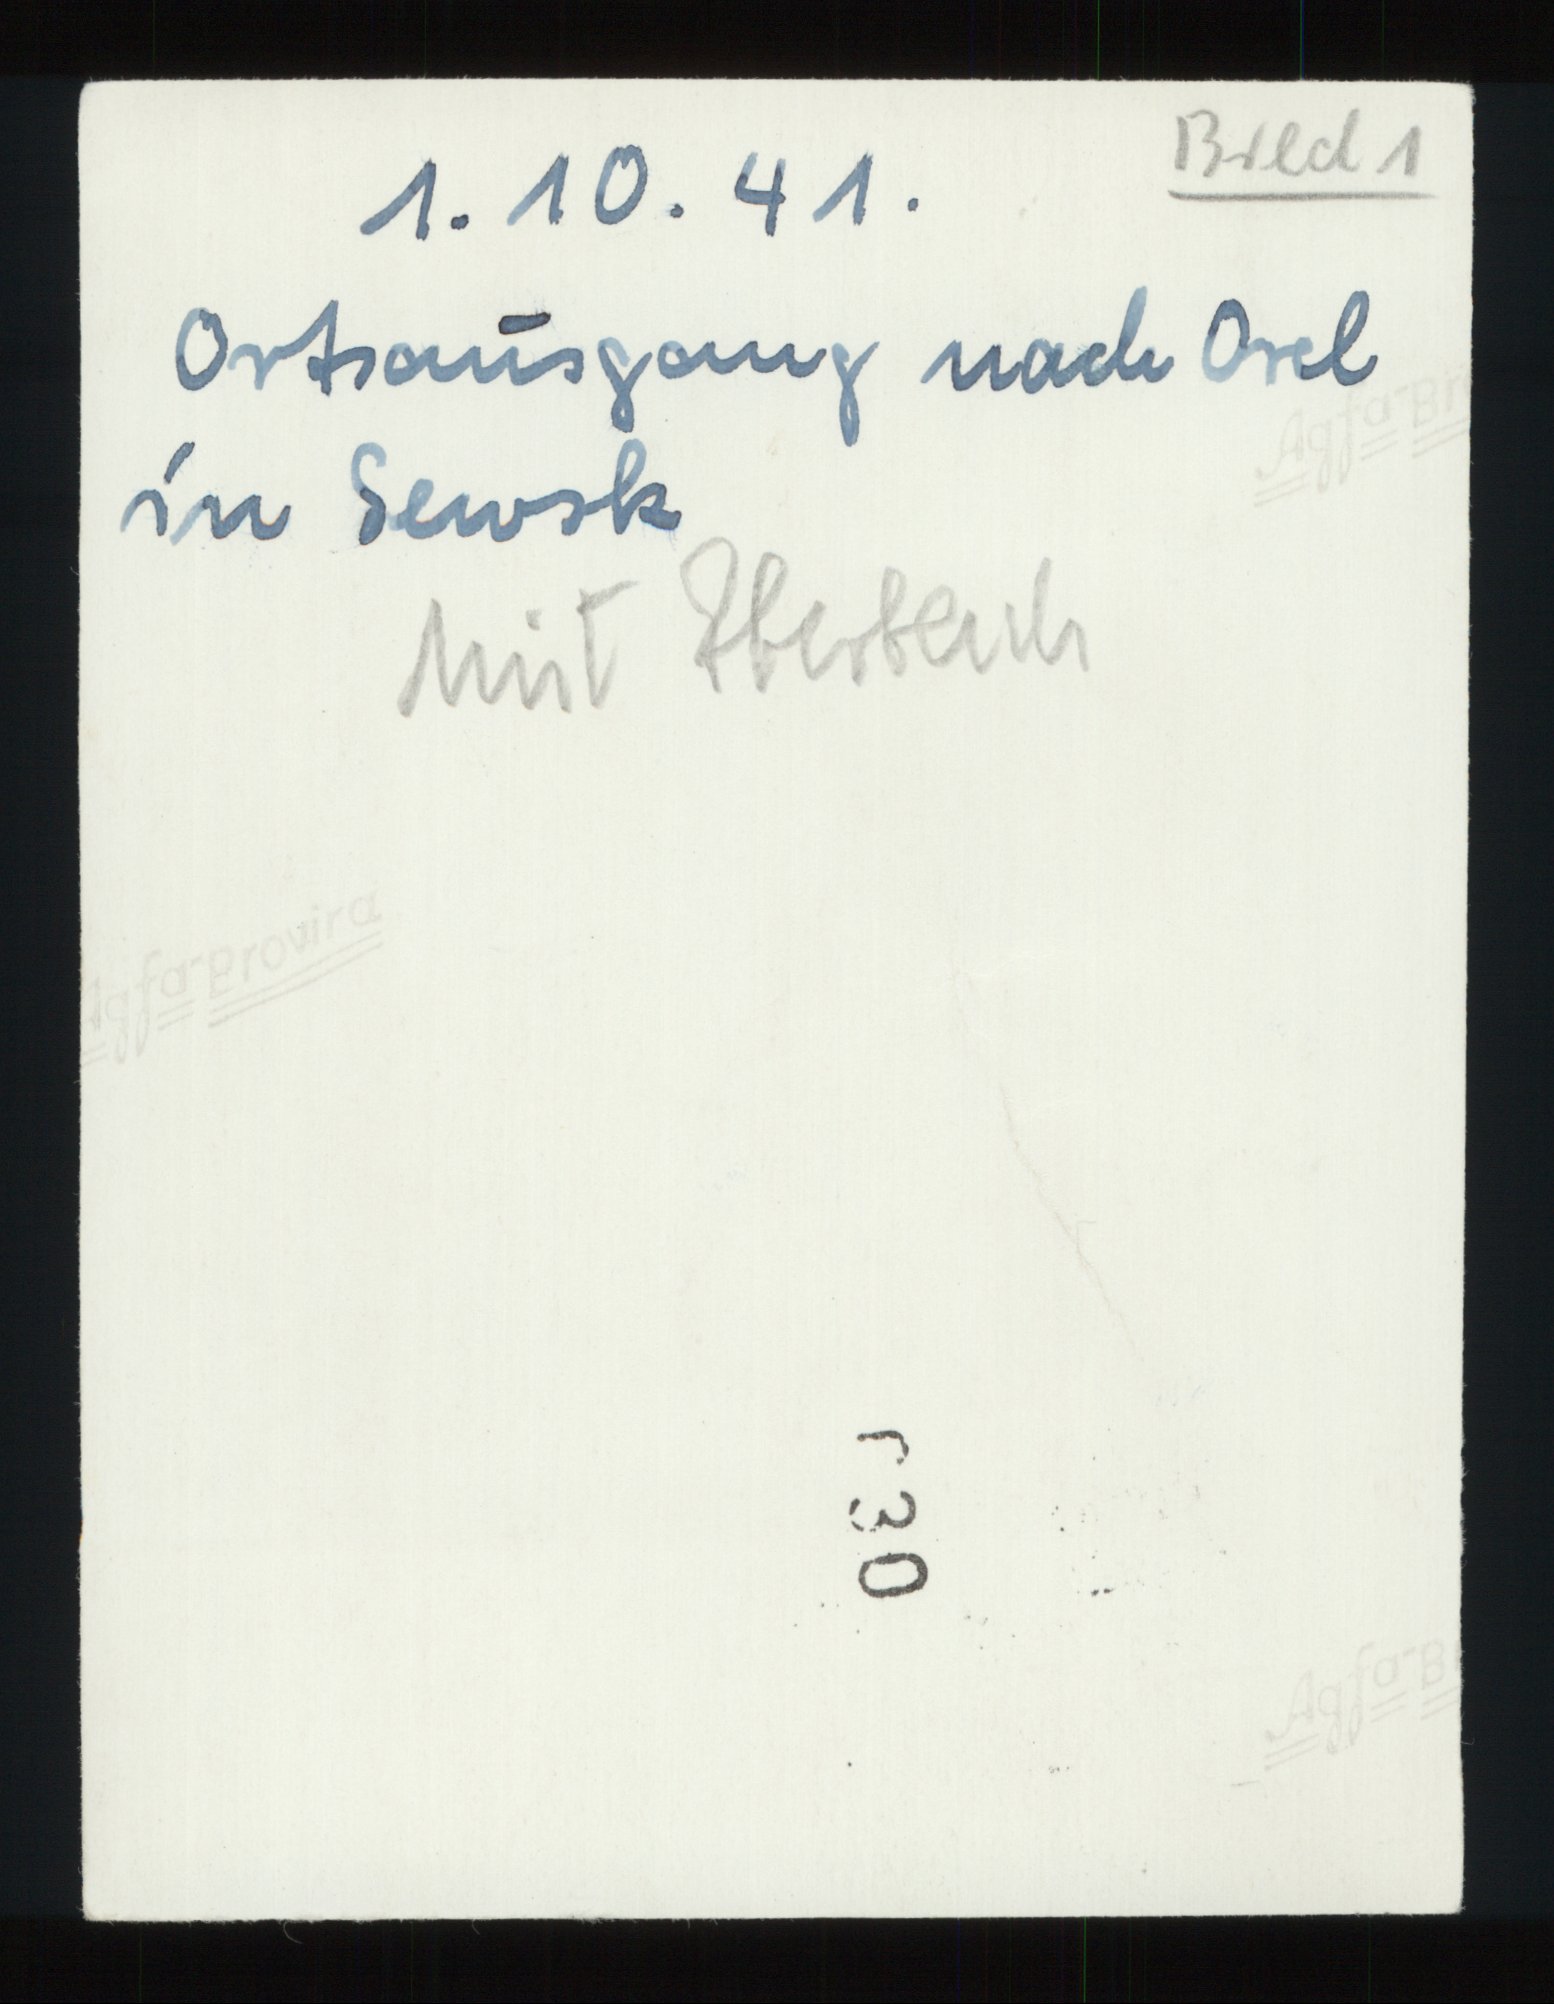 Bild 1
1. 10. 41.
Ortsausgang nach Orel
in Sewsk
Mit
Agfa-Br
Agfa-Brovira
r 30
Agfa-B